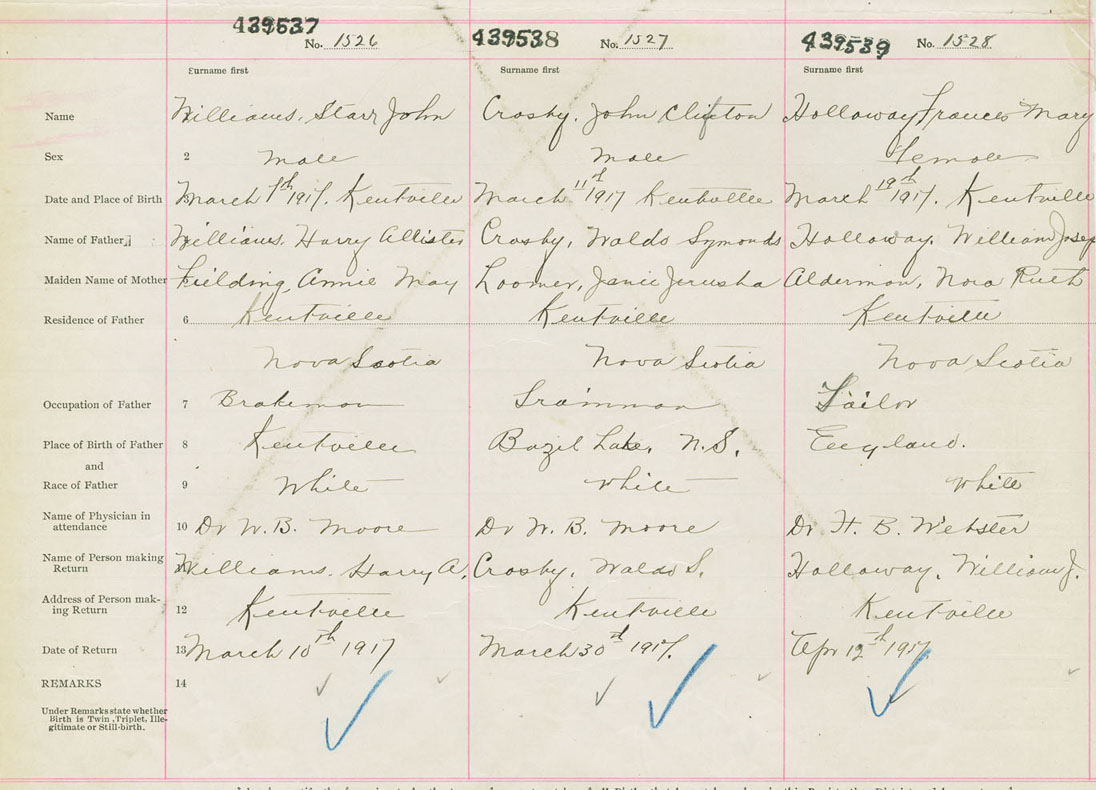 439537 No. 1526 439538 No. 1527 439539 No. 1528
Surname first Surname first Surname first
Name Williams, Starr John Crosby, John Clifton Holloway Frances Mary
Sex 2 male male Female
Date and Place of Birth March 1917, Kentville March 11th 1917 Kentville March 19th 1917. Kentville
Name of Father Williams, Harry Allister Crosby, Waldo Symonds Holloway, William Josep
Maiden Name of Mother Fielding, Annie May Loomer, Janie Jerusha Alderman, Nora Ruth
Residence of Father 6 Kentville Kentville Kentville
Nova Scotia Nova Scotia Nova Scotia
Occupation of Father 7 Brakeman Trainman Tailor
Place of Birth of Father 8 Kentville Bazil Lake, N.S. England.
and
Race of Father 9 White White White
Name of Physician in
attendance 10 Dr W. B. Moore Dr W. B. Moore Dr H. B. Webster
Name of Person making
Return Williams, Harry A. Crosby, Waldo S. Holloway, William J.
Address of Person mak-
ing Return 12 Kentville Kentville Kentville
Date of Return 13 March 10th 1917 March 30th 1917. Apr 12th 1917
REMARKS 14
Under Remarks state whether
Birth is Twin, Triplet, Ille-
gitimate or Still-birth.